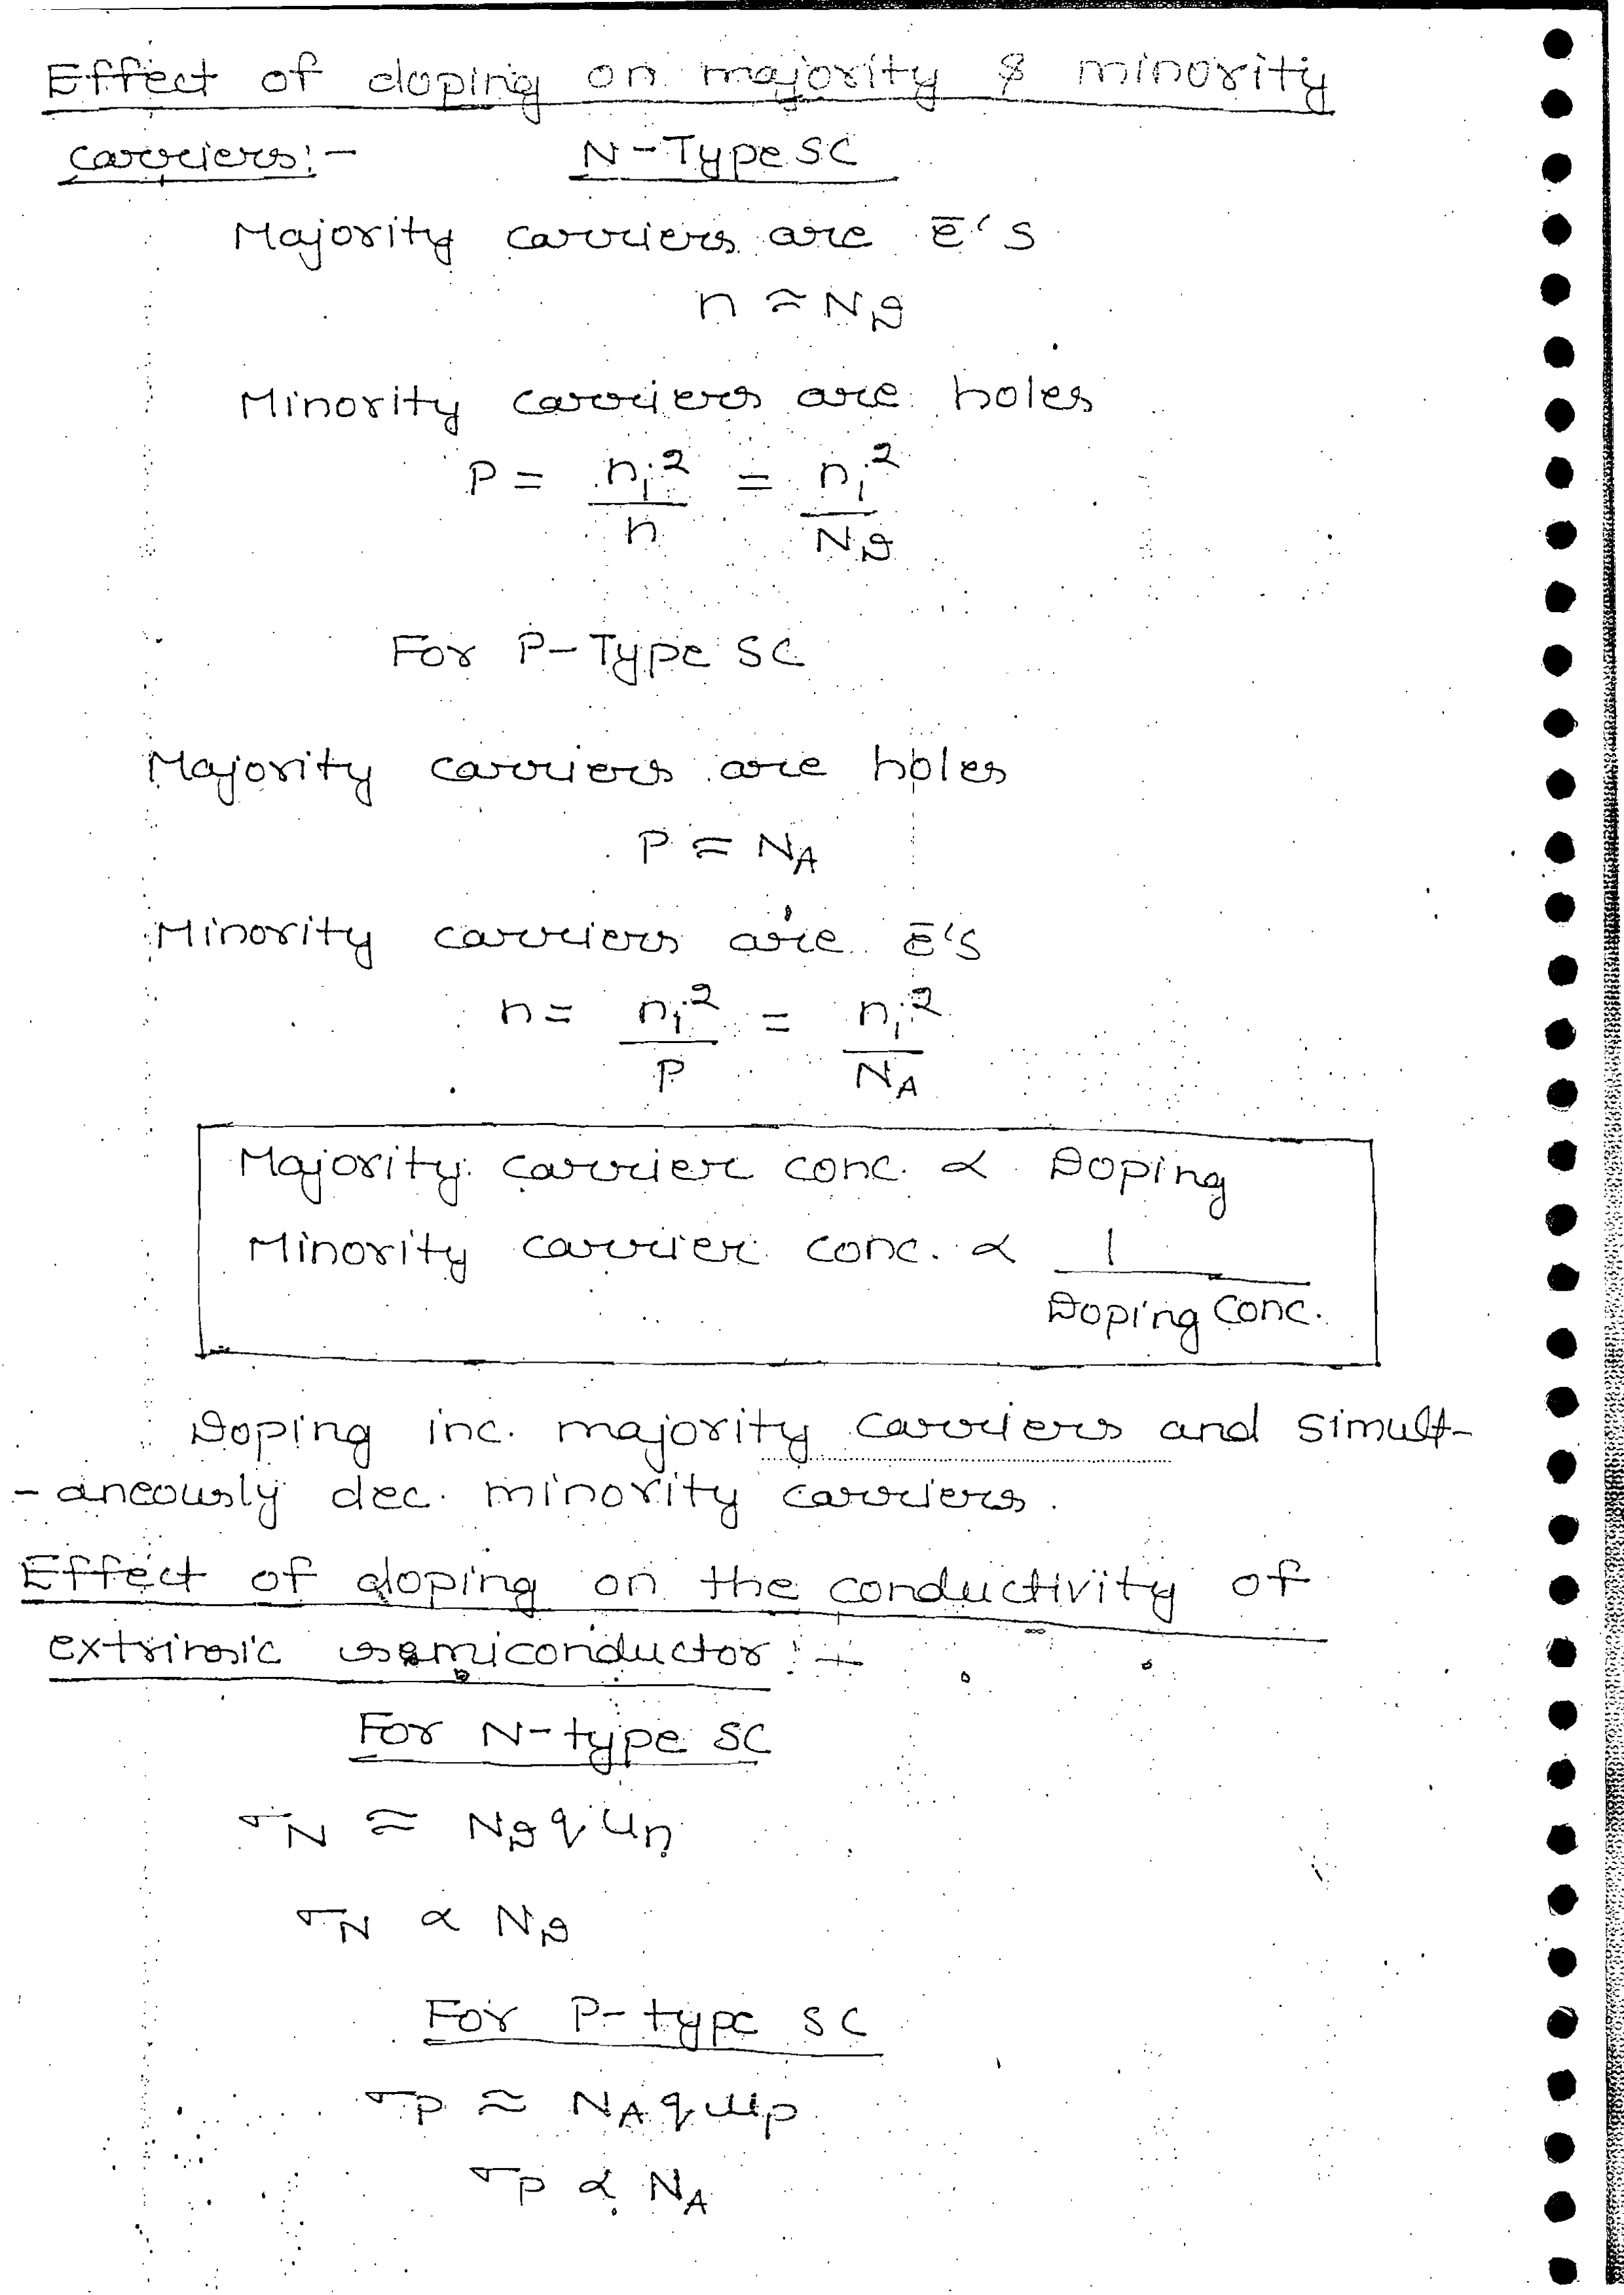 Effect of doping on majority & minority
carriers:- N-Type SC
Majority carriers are ē's
n ≈ N_D
Minority carriers are holes
P = n_i^2 / n = n_i^2 / N_D
For P-Type SC
Majority carriers are holes
P ≈ N_A
Minority carriers are ē's
n = n_i^2 / P = n_i^2 / N_A
Majority carrier conc. ∝ Doping
Minority carrier conc. ∝ 1 / Doping Conc.
Doping inc. majority carriers and simult-
-aneously dec. minority carriers.
Effect of doping on the conductivity of
extrinsic semiconductor:-
For N-type SC
σ_N ≈ N_D q μ_n
σ_N ∝ N_D
For P-type SC
σ_P ≈ N_A q μ_p
σ_P ∝ N_A